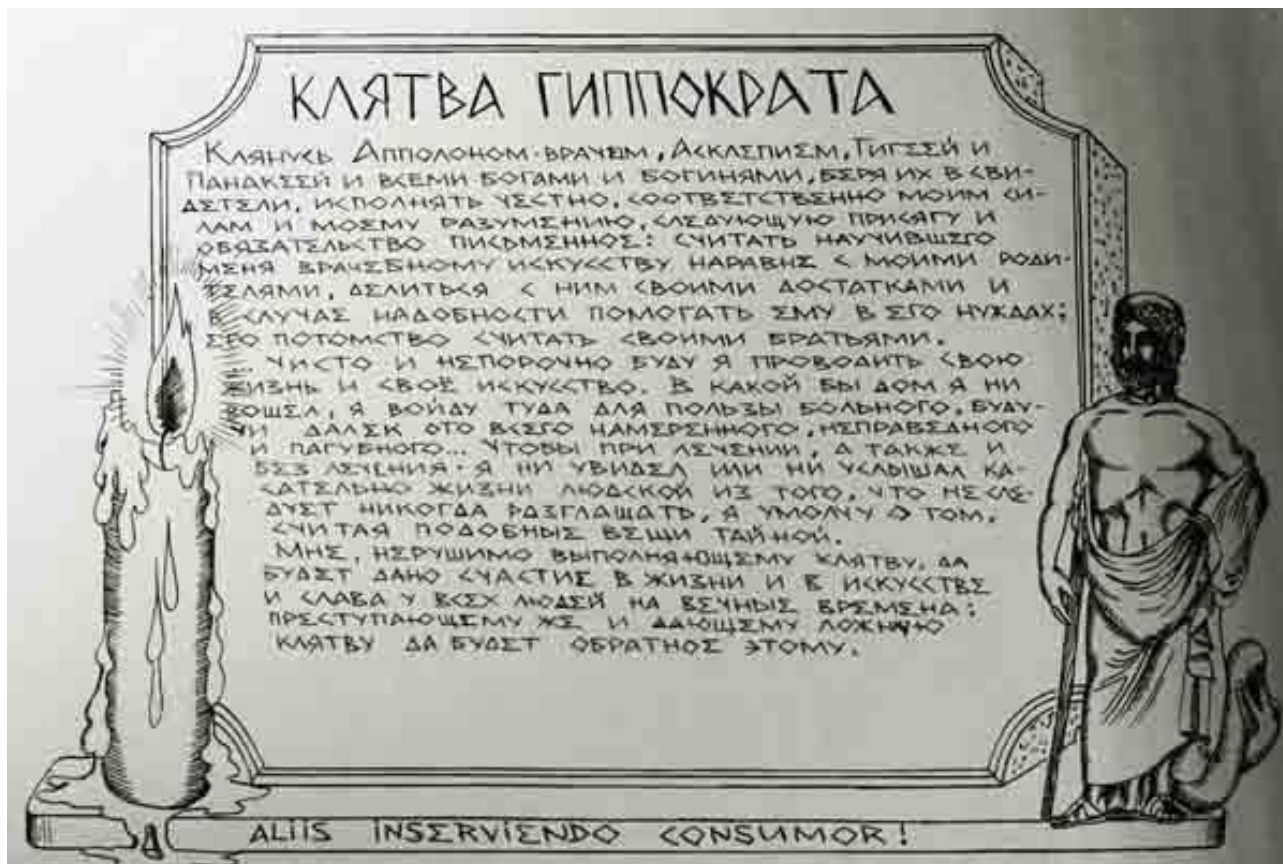 КЛЯТВА ГИППОКРАТА
Клянусь Апполоном-врачем, Асклепием, Гигеей и
Панакеей и всеми богами и богинями, беря их в сви-
детели, исполнять честно, соответственно моим си-
лам и моему разумению, следующую присягу и
обязательство письменное: считать научившего
меня врачебному искусству наравне с моими роди-
телями, делиться с ним своими достатками и
в случае надобности помогать ему в его нуждах;
его потомство считать своими братьями.
... Чисто и непорочно буду я проводить свою
жизнь и своё искусство. В какой бы дом я ни
вошел, я войду туда для пользы больного, буду-
чи далек ото всего намеренного, неправедного
и пагубного... Чтобы при лечении, а также и
без лечения я ни увидел или ни услышал ка-
сательно жизни людской из того, что не сле-
дует никогда разглашать, я умолчу о том,
считая подобные вещи тайной.
Мне, нерушимо выполняющему клятву, да
будет дано счастие в жизни и в искусстве
и слава у всех людей на вечные времена;
преступающему же и дающему ложную
клятву да будет обратное этому.
ALIIS INSERVIENDO CONSUMOR!